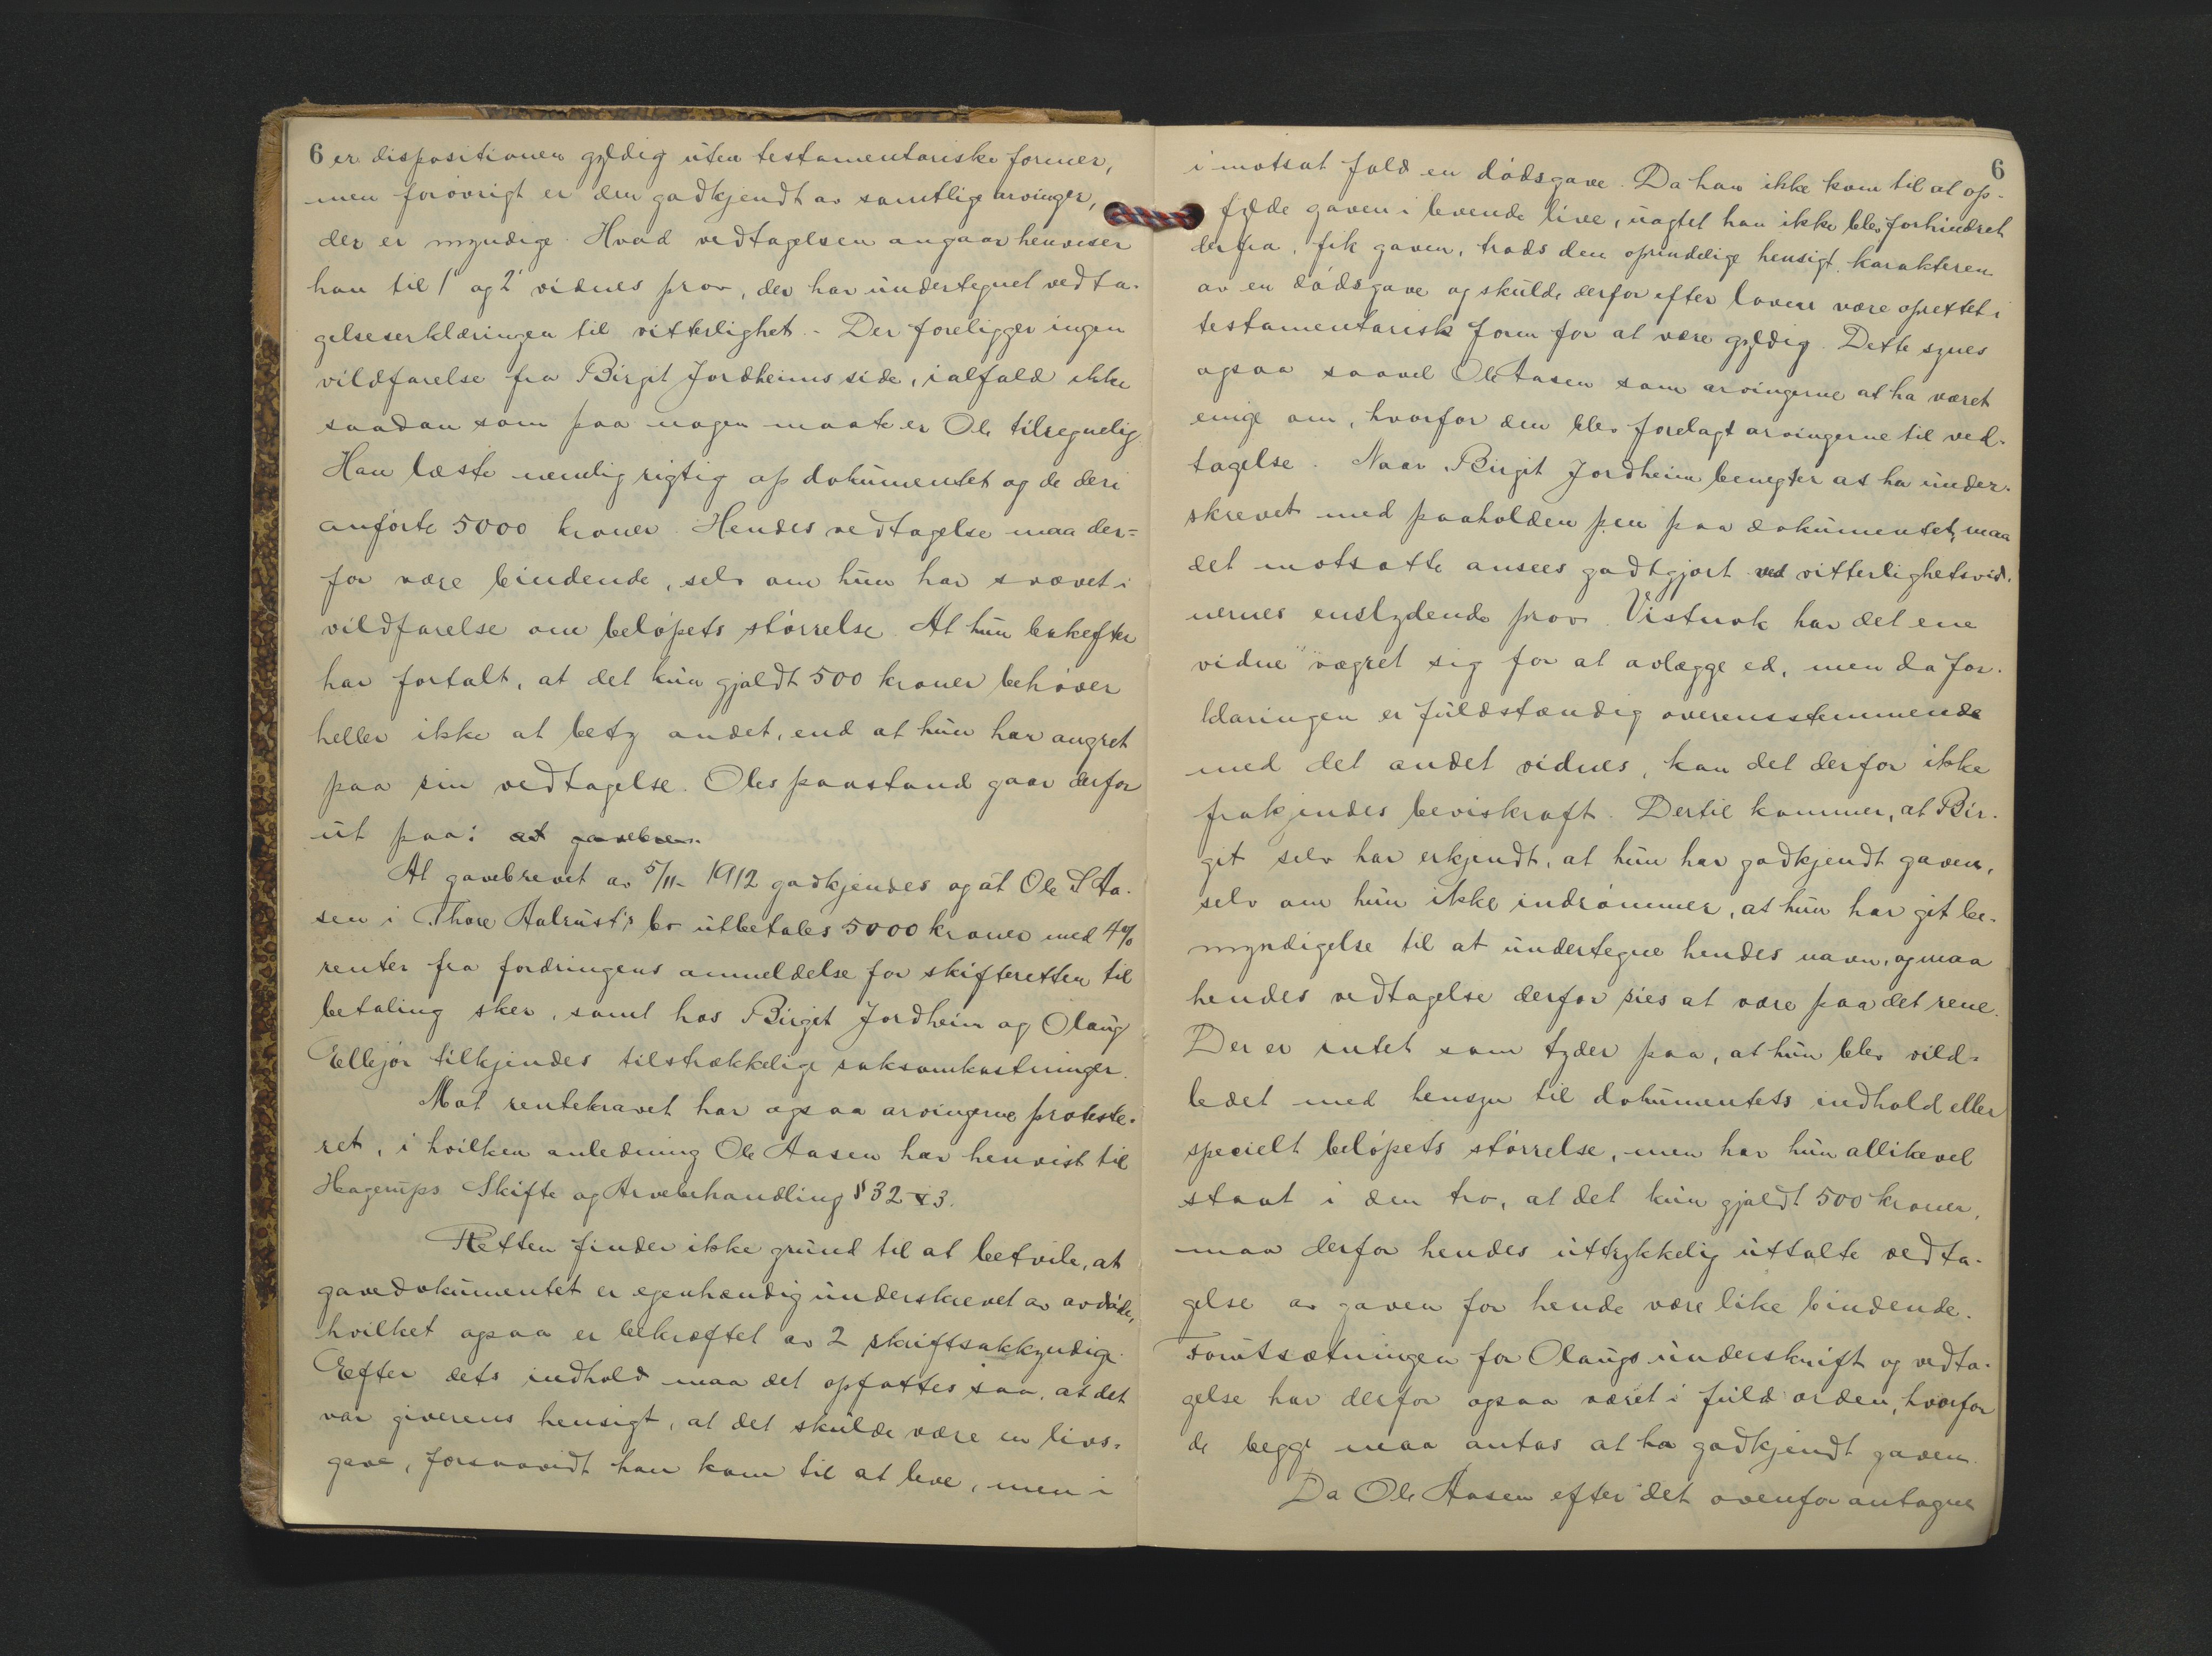 6 er dispositionen gyldig uten testamentariske former,
men forøvrigt er den godkjendt av samtlige arvinger,
der er myndige. Hvad vedtagelsen angaar henviser
han til 1' og 2' vidnes prov, der har undertegnet vedta-
gelseserklæringen til vitterlighet. - Der foreligger ingen
vildfarelse fra Birgit Jordheims side, ialfald ikke
saadan som paa nogen maate er Ole tilregnelig.
Han læste nemlig rigtig op dokumentet og de deri
anførte 5000 kroner. Hendes vedtagelse maa der=
for være bindende, selv om hun har svævet i
vildfarelse om beløpets størrelse. At hun bakefter
har fortalt, at det kun gjaldt 500 kroner behøver
heller ikke at bety andet, end at hun har angret
paa sin vedtagelse. Oles paastand gaar derfor
ut paa: at gavebrev.
At gavebrevet av 5/11- 1912 godkjendes og at Ole S Aa-
sen i Thore Aalrust's bo utbetales 5000 kroner med 4%
renter fra fordringens anmeldelse for skifteretten til
betaling sker, samt hos Birgit Jordheim og Olaug
Ellejor tilkjendes tilstrækkelige saksomkostninger.
Mot rentekravet har ogsaa arvingerne proteste-
ret, i hvilken anledning Ole Aasen har henvist til
Hagerups Skifte og Arvebehandling § 32 x 3.
Retten finder ikke grund til at betvile, at
gavedokumentet er egenhændig underskrevet av avdøde,
hvilket ogsaa er bekræftet av 2 skriftsakkyndige.
Efter dets indhold maa det opfattes saa, at det
var giverens hensigt, at det skulde være en livs-
gave, forsaavidt han kom til at leve, men i
6
i motsat fald en dødsgave. Da han ikke kom til at op-
fylde gaven i levende live, uagtet han ikke blev forhindret
derfra, fik gaven, trods den oprindelige hensigt, karakteren
av en dødsgave og skulde derfor efter loven være oprettet i
testamentarisk form for at være gyldig. Dette synes
ogsaa saavel Ole Aasen som arvingerne at ha været
enige om, hvorfor den blev forelagt arvingerne til ved-
tagelse. Naar Birgit Jordheim benegter at ha under-
skrevet med paaholden pen paa dokumentet, maa
det motsatte ansees godtgjort ved vitterlighetsvid-
nernes enslydende prov. Vistnok har det ene
vidne vægret sig for at avlægge ed, men da for-
klaringen er fuldstændig overensstemmende
med det andet vidnes, kan det derfor ikke
frakjendes beviskraft. Dertil kommer, at Bir-
git selv har erkjendt, at hun har godkjendt gaven,
selv om hun ikke indrømmer, at hun har git be-
myndigelse til at undertegne hendes navn, og maa
hendes vedtagelse derfor sies at være paa det rene.
Der er intet som tyder paa, at hun blev vild-
ledet med hensyn til dokumentets indhold eller
specielt beløpets størrelse, men har hun allikevel
staat i den tro, at det kun gjaldt 500 kroner,
maa derfor hendes uttrykkelig uttalte vedta-
gelse av gaven for hende være like bindende.
Forutsætningen for Olaugs underskrift og vedta-
gelse har derfor ogsaa været i fuld orden, hvorfor
de begge maa antas at ha godkjendt gaven.
Da Ole Aasen efter det ovenfor antagne